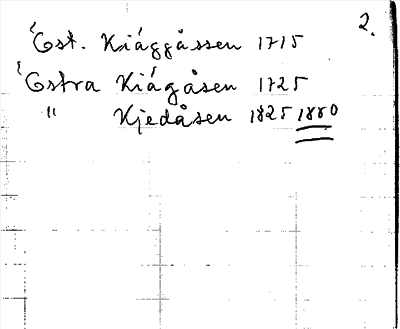 2.
Öst. Kiäggåssen 1715
Östra Kiägåsen 1725
" Kjedåsen 1825 1880